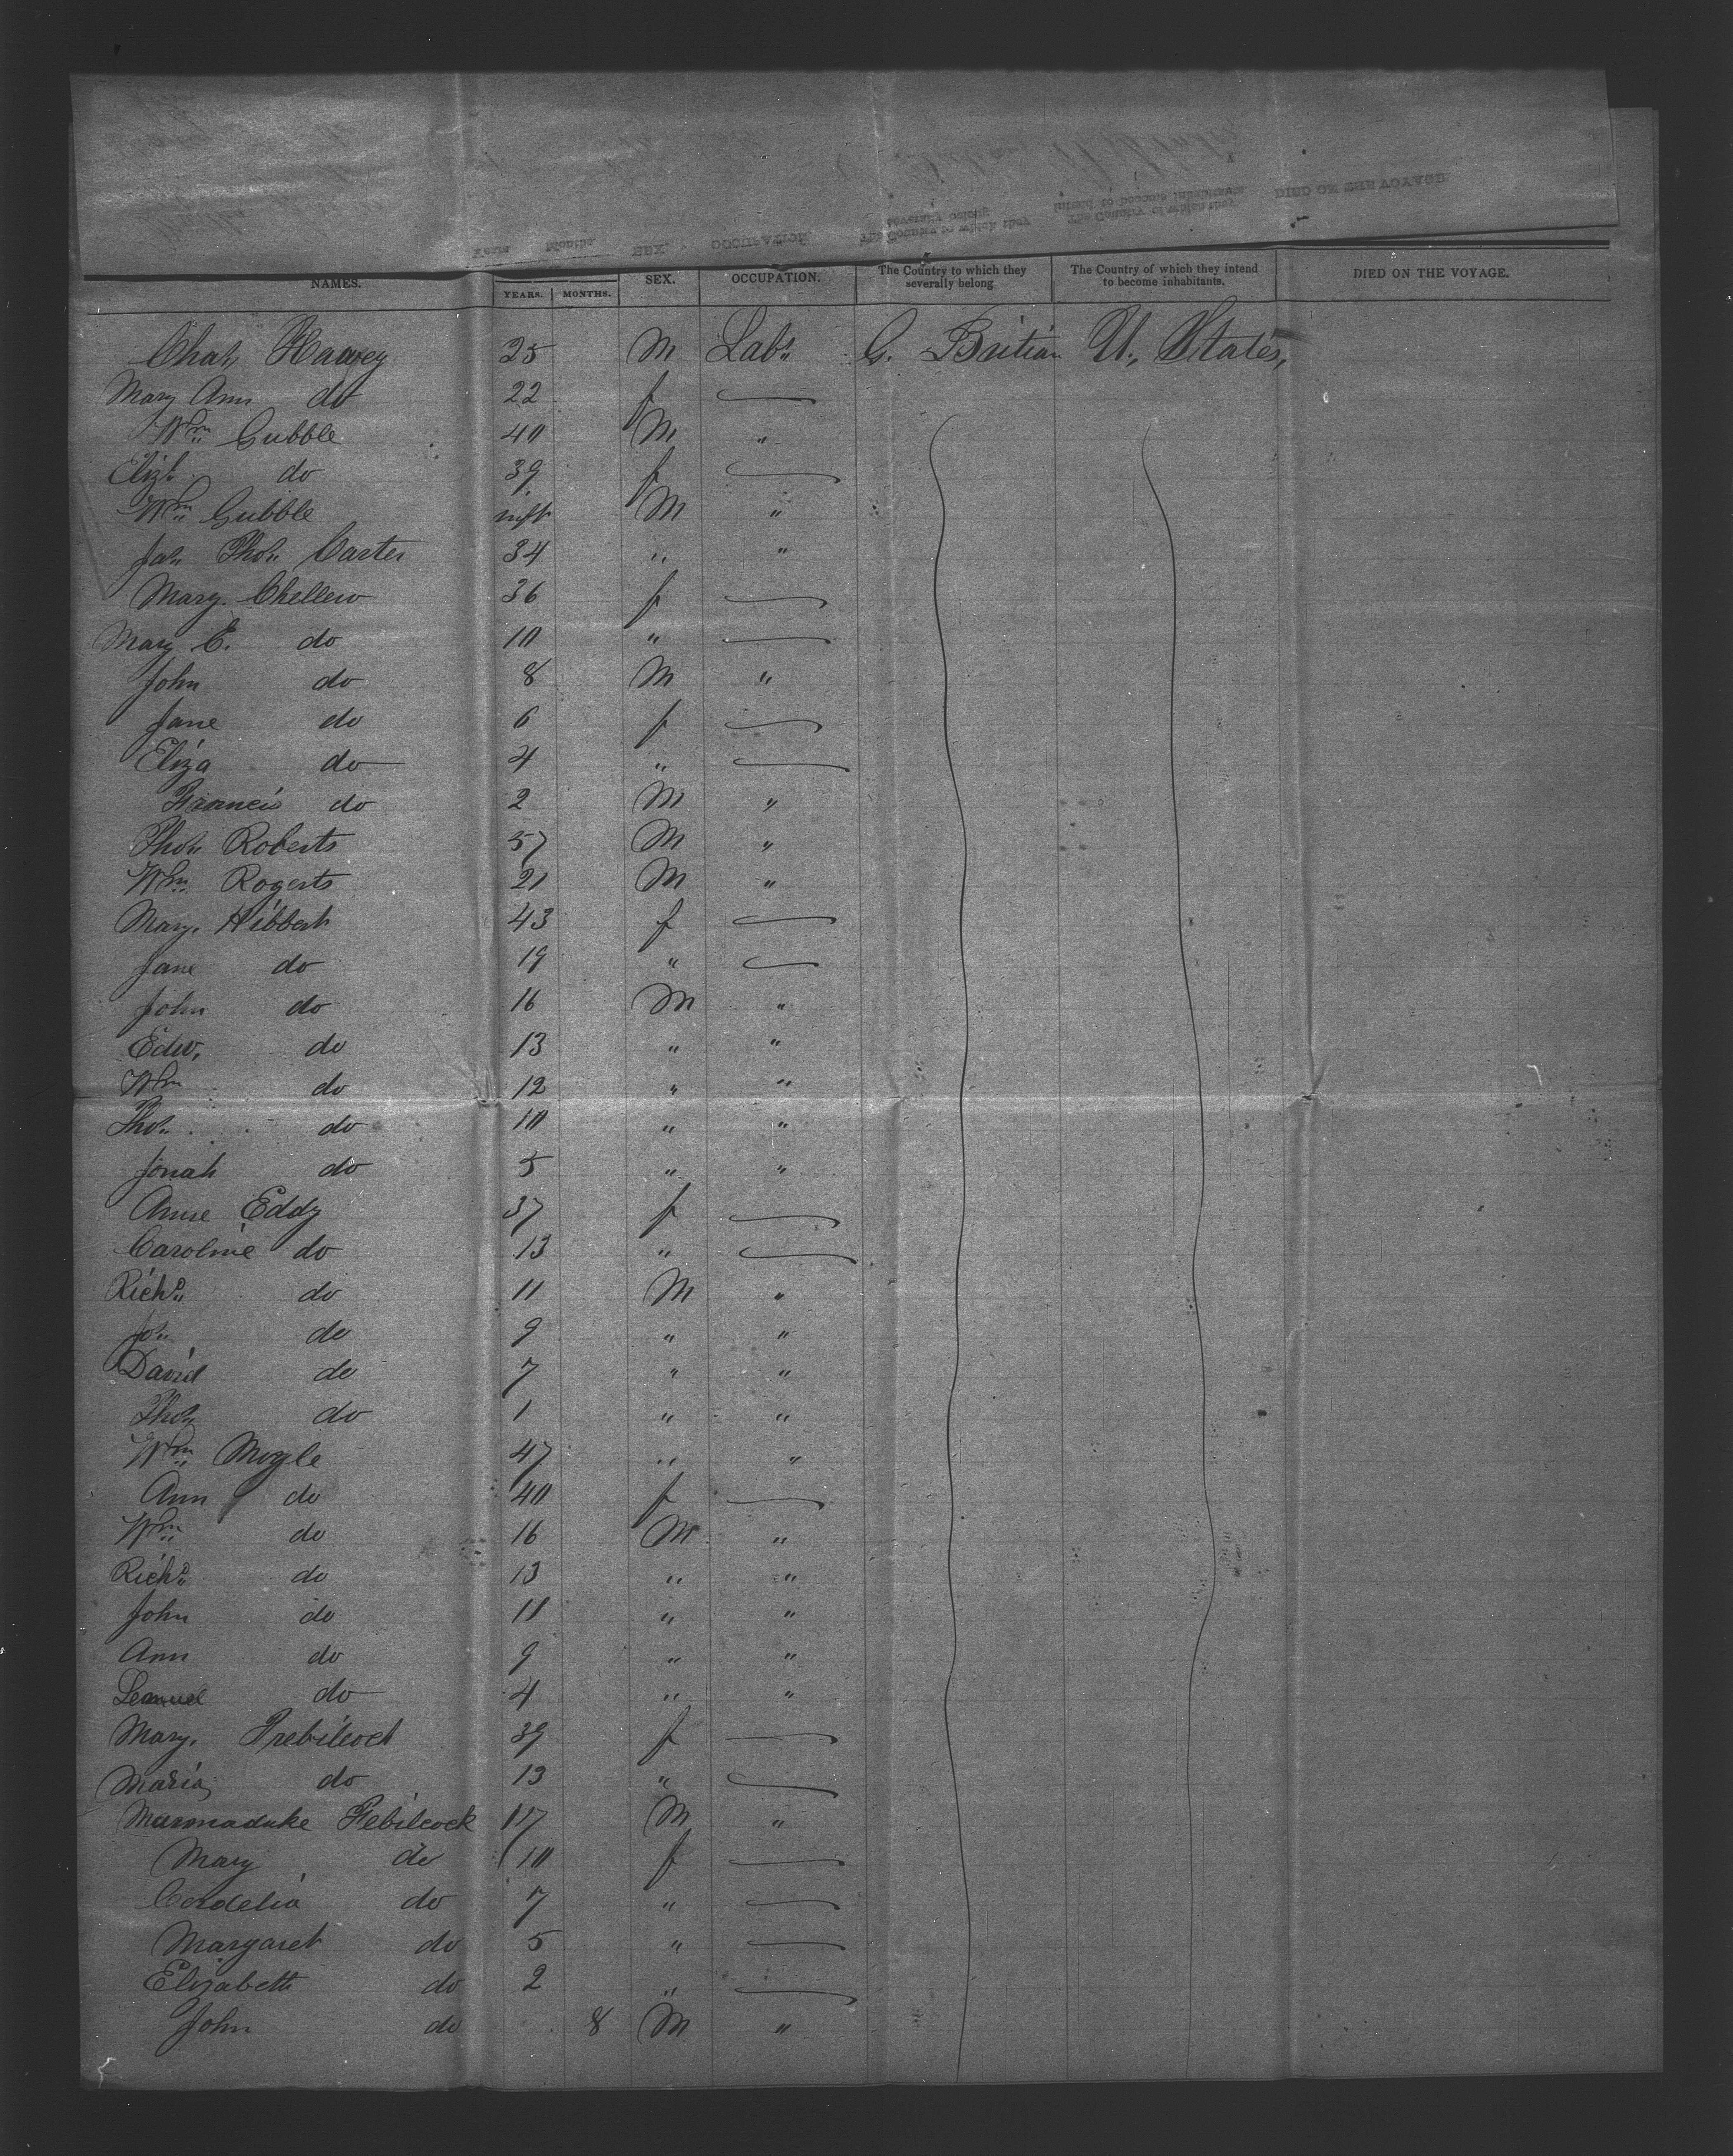 NAMES. YEARS. MONTHS. SEX. OCCUPATION. The Country to which they severally belong The Country of which they intend to become inhabitants. DIED ON THE VOYAGE.
Chas Harvey 25 M Labr G. Britian U. States,
Mary Ann do 22 f
Wm Gubble 40 M "
Elizh do 39 f
Wm Gubble inft M "
Jas Thos Carter 34 " "
Mary. Chellew 36 f
Mary E. do 10 "
John do 8 M "
Jane do 6 f
Eliza do 4 "
Francis do 2 M "
Thos Roberts 57 M "
Wm Rogerts 21 M "
Mary. Hibbert 43 f
Jane do 19 "
John do 16 M "
Edw. do 13 " "
Wm do 12 " "
Thos do 10 " "
Jonah do 5 " "
Anne Eddy 37 f
Caroline do 13 "
Richd do 11 M "
Jos do 9 " "
David do 7 " "
Thos do 1 " "
Wm Moyle 47 " "
Ann do 40 f
Wm do 16 M "
Richd do 13 " "
John do 11 " "
Ann do 9 " "
Lemuel do 4 " "
Mary. Trebilcock 39 f
Maria do 13 "
Murmaduke Trebilcock 117 M "
Mary do 10 f
Cordelia do 7 "
Margaret do 5 "
Elizabeth do 2 "
John do 8 M "